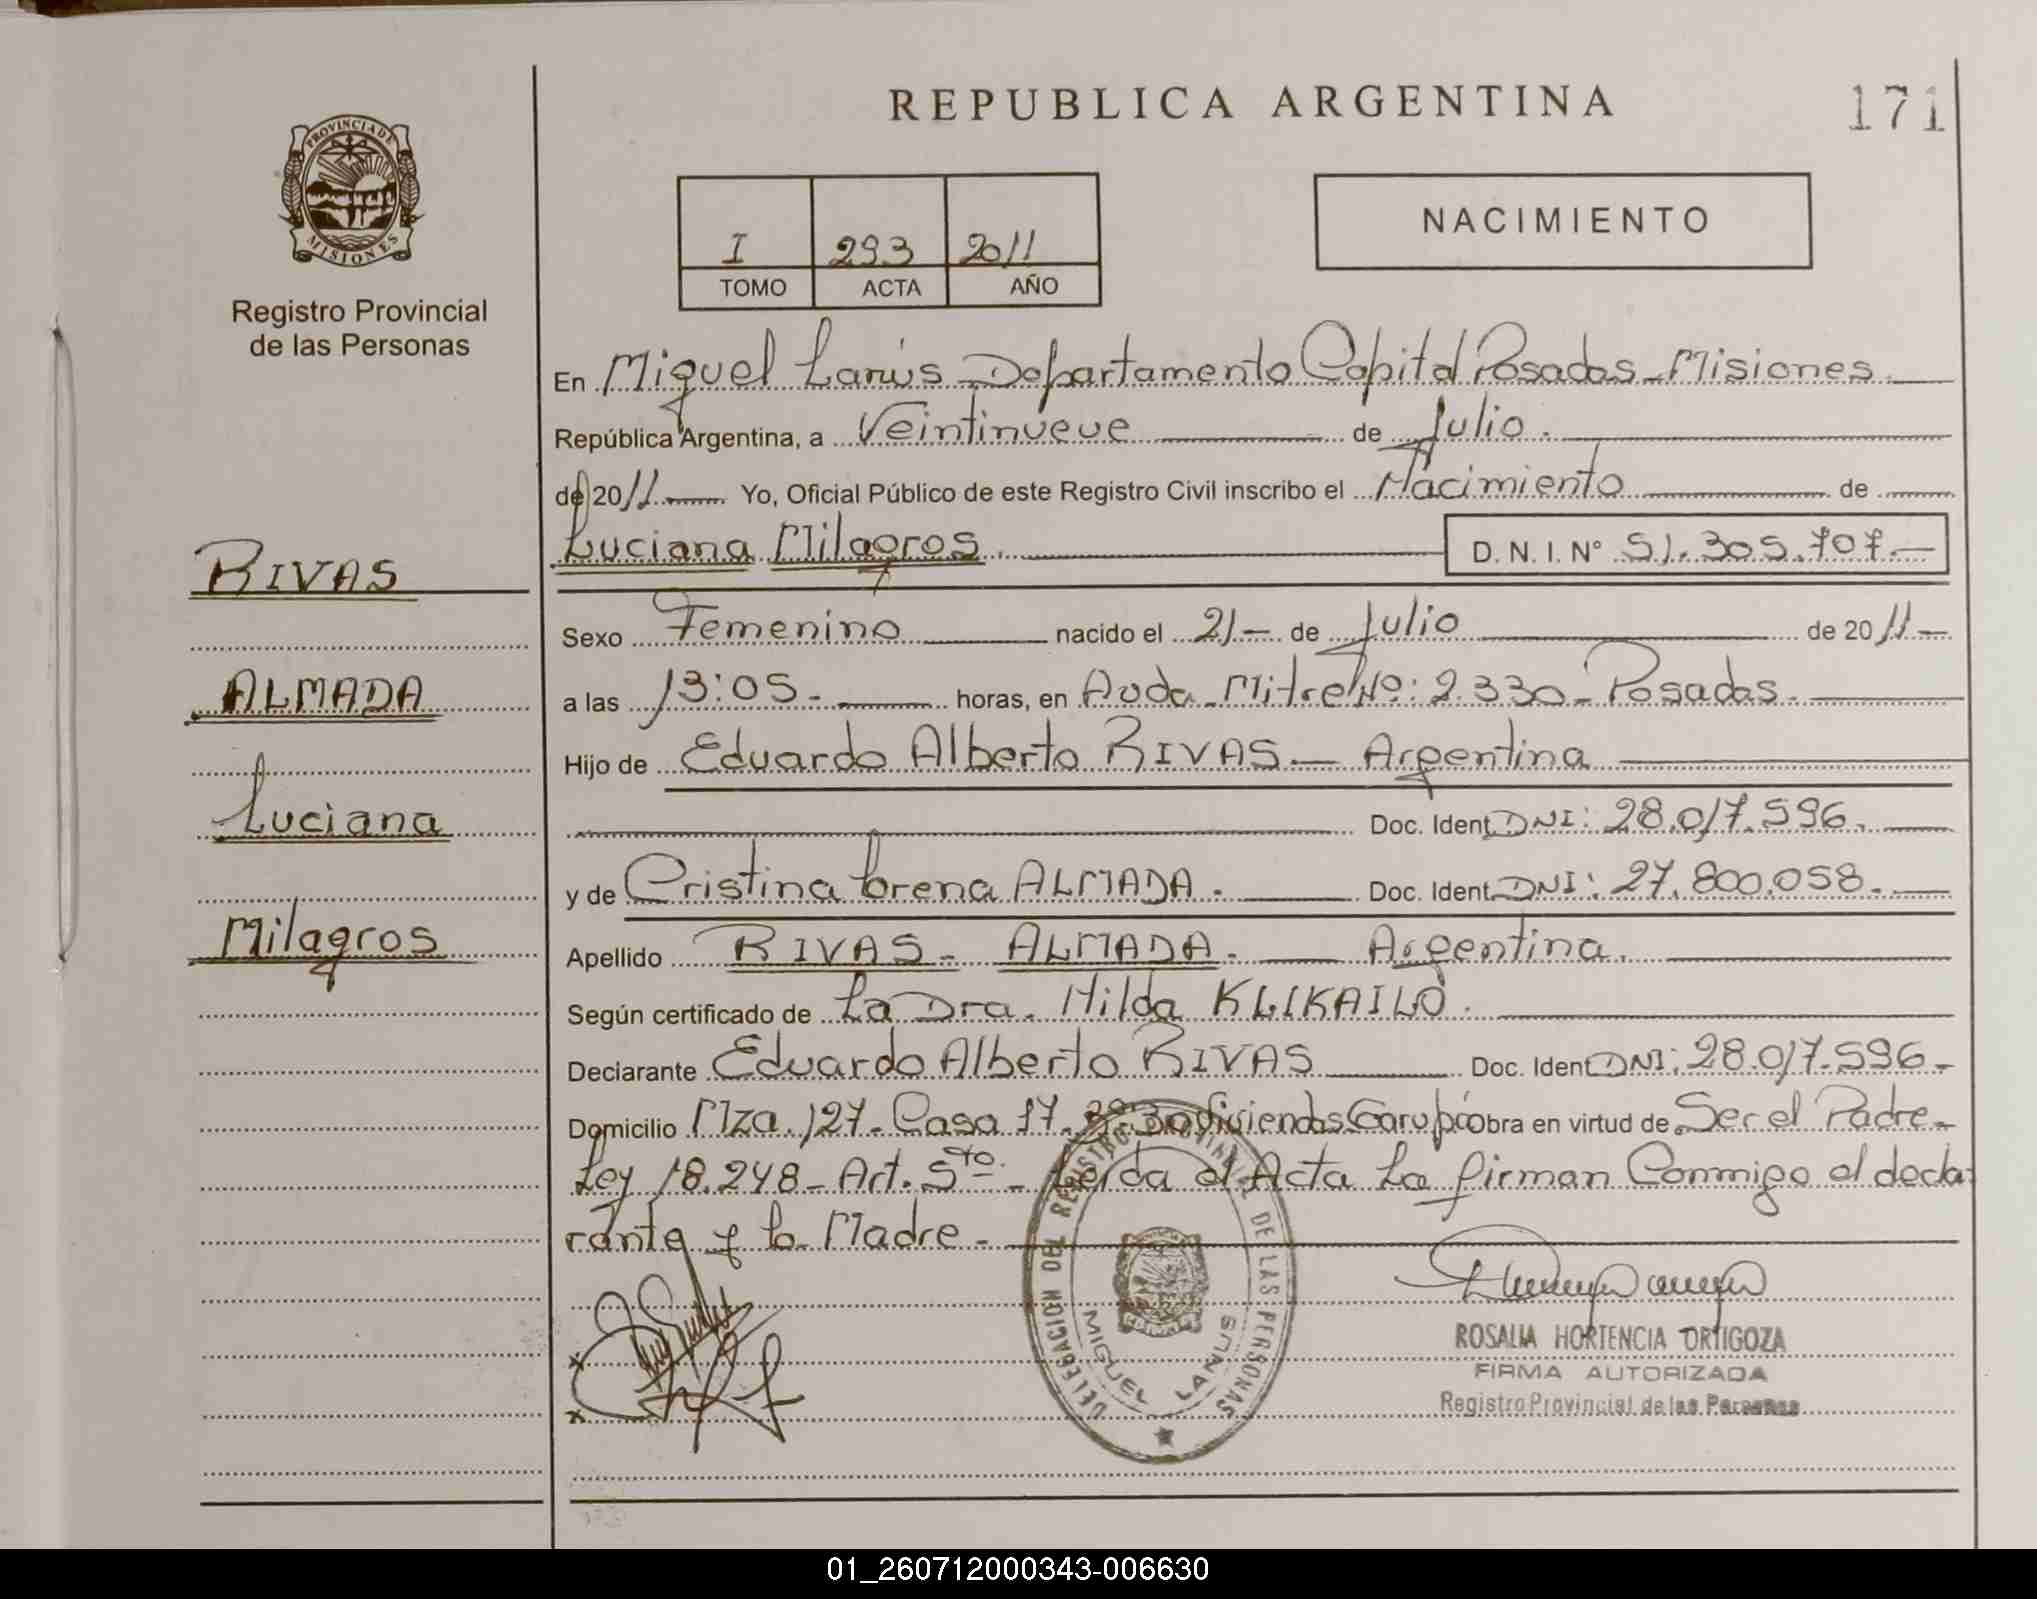 REPUBLICA ARGENTINA
171
PROVINCIA DE
MISIONES
Registro Provincial
de las Personas
I 293 2011
TOMO ACTA AÑO
NACIMIENTO
En Miguel Lanús Departamento Capital Posadas Misiones
República Argentina, a Veintinueve de Julio.
de 2011 Yo, Oficial Público de este Registro Civil inscribo el Nacimiento de
Luciana Milagros. D. N. I. N° 51.305.707.-
RIVAS
ALMADA
Luciana
Milagros
Sexo Femenino nacido el 21- de Julio de 2011-
a las 13:05.- horas, en Avda. Mitre Nº: 2.330- Posadas.
Hijo de Eduardo Alberto RIVAS - Argentina
Doc. Ident. DNI: 28.017.596.
y de Cristina Lorena ALMADA. Doc. Ident. DNI: 27.800.058.
Apellido RIVAS- ALMADA. Argentina.
Según certificado de La Dra. Hilda KLIKAILO.
Declarante Eduardo Alberto RIVAS Doc. Ident DNI: 28.017.596-
Domicilio Mza. 127- Casa 17. Viviendas Garupá obra en virtud de Ser el Padre-
Ley 18.248- Art. 5to.- Leída el Acta La firman Conmigo el decla-
rante y la Madre-
DELEGACION DEL REGISTRO PROVINCIAL DE LAS PERSONAS
MIGUEL LANUS
ROSALIA HORTENCIA ORTIGOZA
FIRMA AUTORIZADA
Registro Provincial de las Personas
x
x
01_260712000343-006630